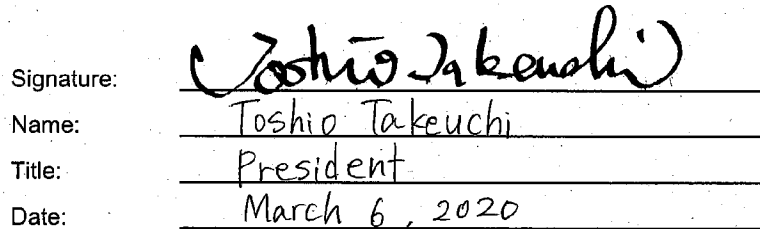 Signature: Toshio Takeuchi
Name: Toshio Takeuchi
Title: President
Date: March 6, 2020